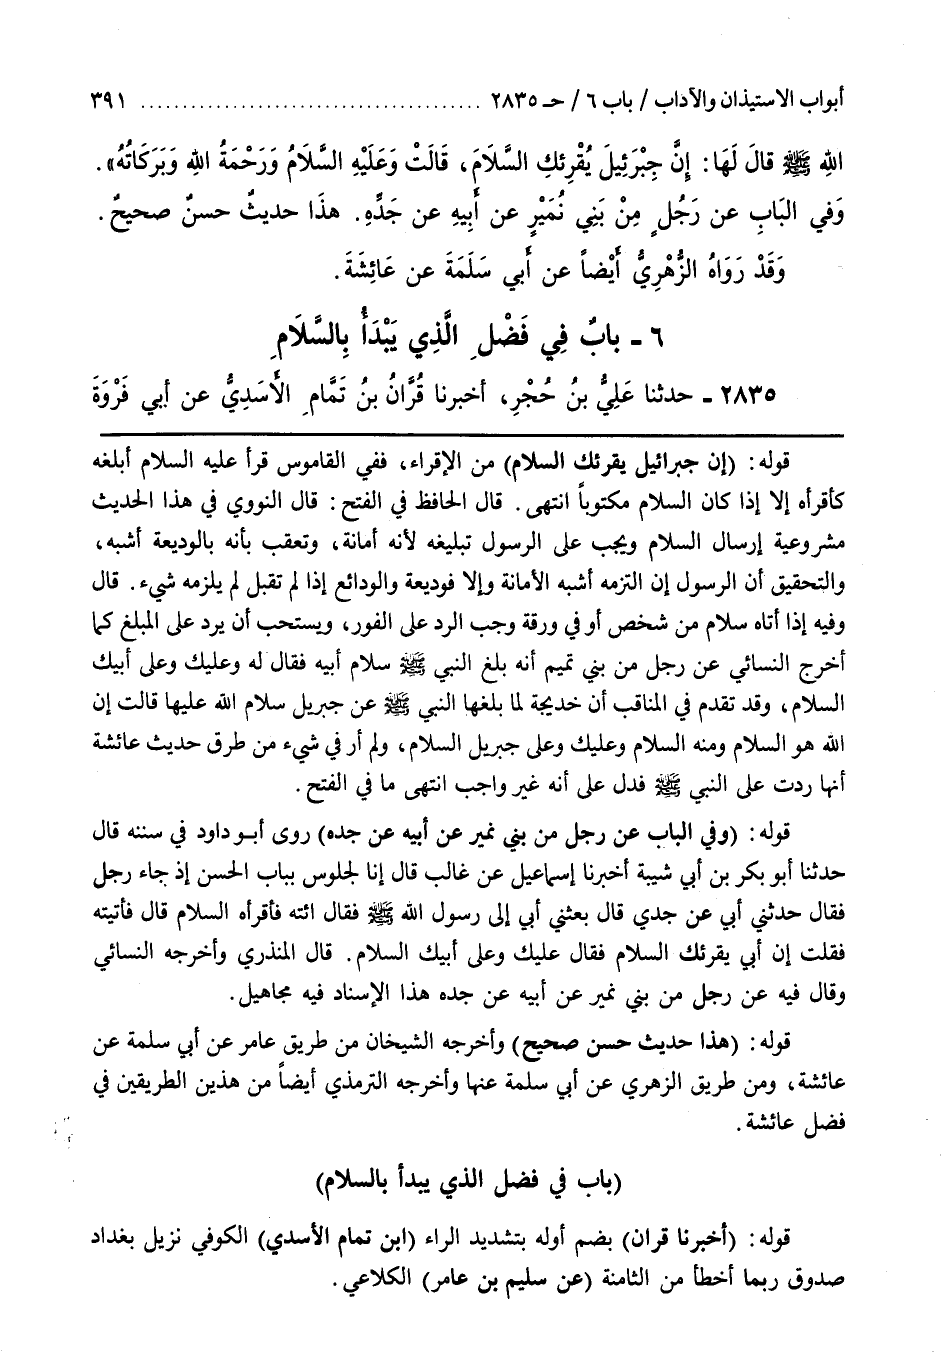 أبواب الاستيذان والآداب / باب ٦ / حـ ٢٨٣٥ ........................................ ٣٩١
اللهِ ﷺ قالَ لَهَا: إِنَّ جِبْرَئِيلَ يُقْرِئكِ السَّلَامَ، قَالَتْ وَعَلَيْهِ السَّلَامُ وَرَحْمَةُ اللهِ وَبَرَكَاتُهُ».
وَفي البَابِ عن رَجُلٍ مِنْ بَنِي نُمَيْرٍ عن أَبِيهِ عن جَدِّهِ. هذَا حديثٌ حسنٌ صحيحٌ.
وَقَدْ رَوَاهُ الزُّهْرِيُّ أَيْضاً عن أَبي سَلَمَةَ عن عَائِشَةَ.
٦ - بابٌ فِي فَضْلِ الَّذِي يَبْدَأُ بِالسَّلَامِ
٢٨٣٥ - حدثنا عَلِيُّ بنُ حُجْرٍ، أخبرنا قُرَّانُ بنُ تَمَّامٍ الأَسَدِيُّ عن أبي فَرْوَةَ
قوله: (إن جبرائيل يقرئك السلام) من الإقراء، ففي القاموس قرأ عليه السلام أبلغه
كأقرأه إلا إذا كان السلام مكتوباً انتهى. قال الحافظ في الفتح: قال النووي في هذا الحديث
مشروعية إرسال السلام ويجب على الرسول تبليغه لأنه أمانة، وتعقب بأنه بالوديعة أشبه،
والتحقيق أن الرسول إن التزمه أشبه الأمانة وإلا فوديعة والودائع إذا لم تقبل لم يلزمه شيء. قال
وفيه إذا أتاه سلام من شخص أو في ورقة وجب الرد على الفور، ويستحب أن يرد على المبلغ كما
أخرج النسائي عن رجل من بني تميم أنه بلغ النبي ﷺ سلام أبيه فقال له وعليك وعلى أبيك
السلام، وقد تقدم في المناقب أن خديجة لما بلغها النبي ﷺ عن جبريل سلام الله عليها قالت إن
الله هو السلام ومنه السلام وعليك وعلى جبريل السلام، ولم أر في شيء من طرق حديث عائشة
أنها ردت على النبي ﷺ فدل على أنه غير واجب انتهى ما في الفتح.
قوله: (وفي الباب عن رجل من بني نمير عن أبيه عن جده) روى أبو داود في سننه قال
حدثنا أبو بكر بن أبي شيبة أخبرنا إسماعيل عن غالب قال إنا لجلوس بباب الحسن إذ جاء رجل
فقال حدثني أبي عن جدي قال بعثني أبي إلى رسول الله ﷺ فقال ائته فأقرأه السلام قال فأتيته
فقلت إن أبي يقرئك السلام فقال عليك وعلى أبيك السلام. قال المنذري وأخرجه النسائي
وقال فيه عن رجل من بني نمير عن أبيه عن جده هذا الإسناد فيه مجاهيل.
قوله: (هذا حديث حسن صحيح) وأخرجه الشيخان من طريق عامر عن أبي سلمة عن
عائشة، ومن طريق الزهري عن أبي سلمة عنها وأخرجه الترمذي أيضاً من هذين الطريقين في
فضل عائشة.
(باب في فضل الذي يبدأ بالسلام)
قوله: (أخبرنا قران) بضم أوله بتشديد الراء (ابن تمام الأسدي) الكوفي نزيل بغداد
صدوق ربما أخطأ من الثامنة (عن سليم بن عامر) الكلاعي.